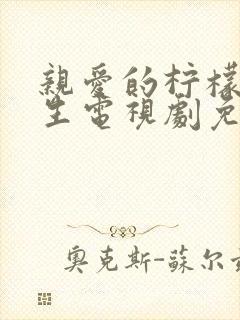 親愛的柠檬
生電視劇免
奧克斯-蘇尔